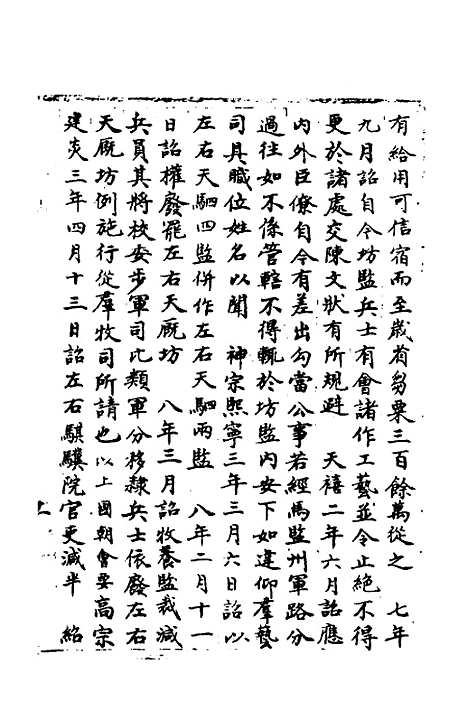 有給用可信宿而至歲省芻粟三百餘萬從之　七年
九月詔自今坊監兵士有會諸作工藝並令止絕不得
更於諸處交陳文狀有所規避　天禧二年六月詔應
內外臣僚自今有差出勾當公事若經馬監州軍路分
過往如不係管轄不得輒於坊監內安下如違仰羣藝
司具職位姓名以聞　神宗熙寧三年三月六日詔以
左右天駟四監併作左右天駟兩監　八年二月十一
日詔權廢罷左右天厩坊　八年三月詔牧養監裁減
兵員其將校安步軍司比類軍分移隸兵士依廢左右
天厩坊例施行從羣牧司所請也以上國朝會要高宗
建炎三年四月十三日詔左右騏驥院官吏減半　紹